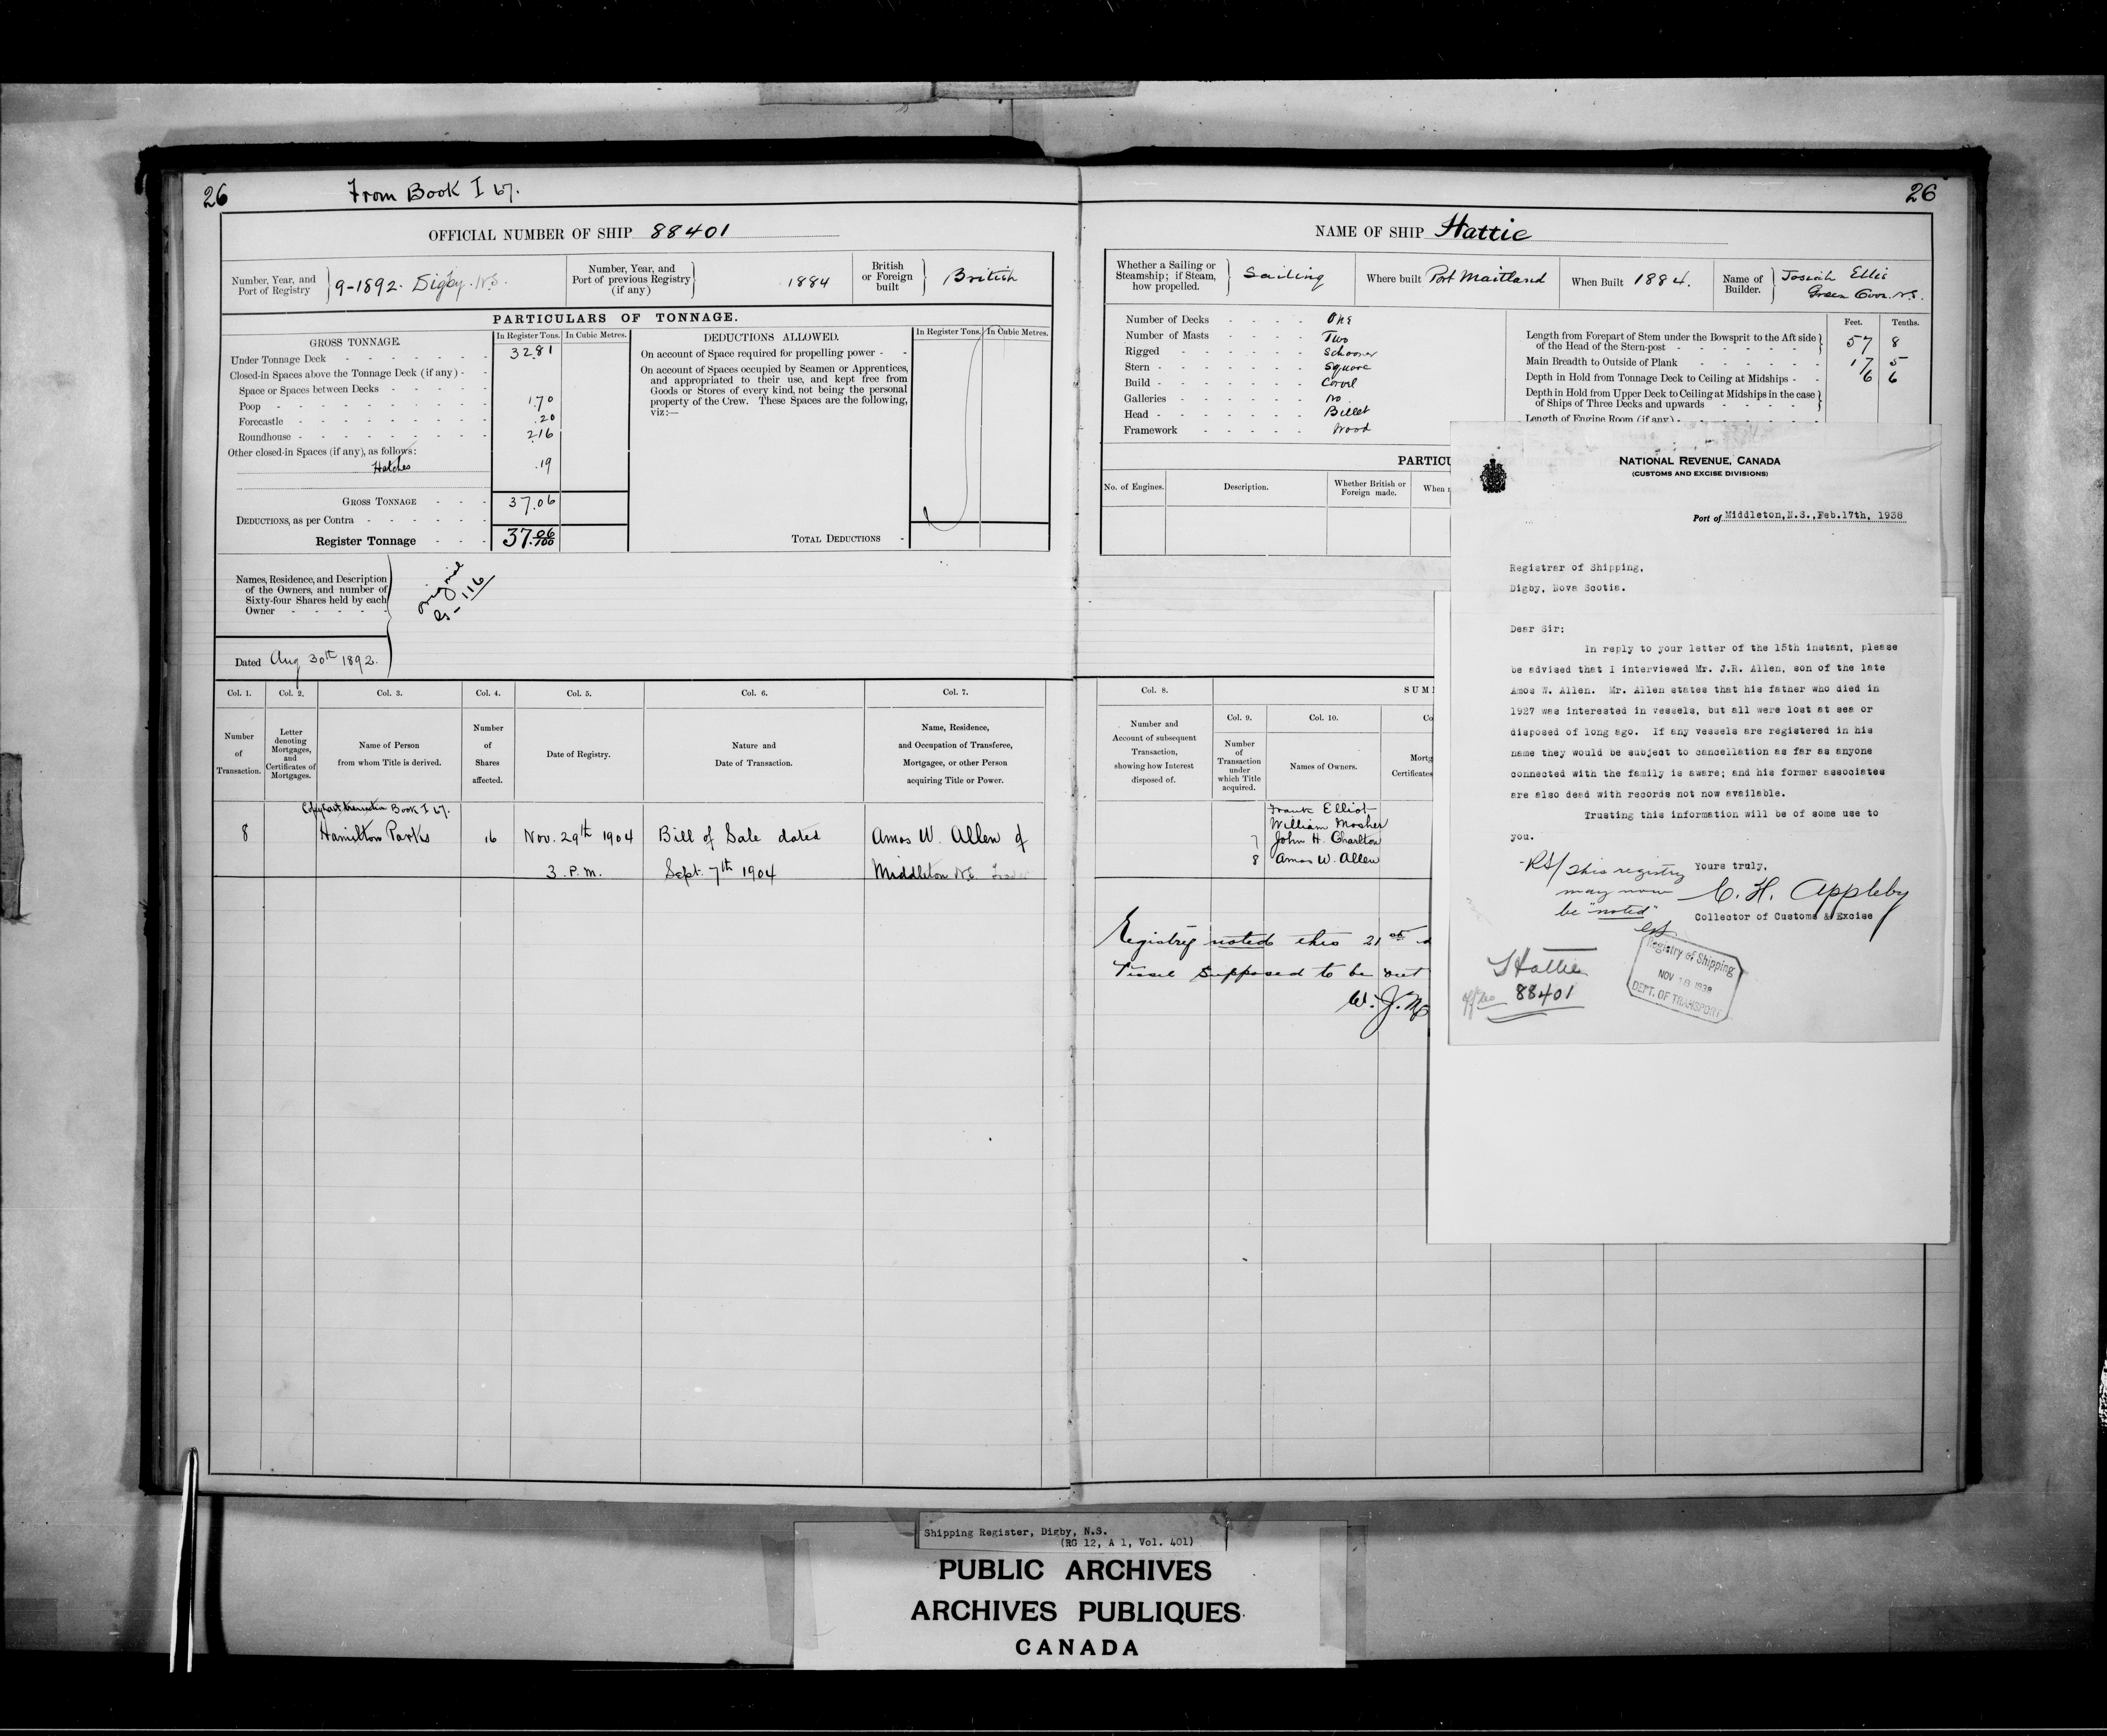 26
From Book I 67.
OFFICIAL NUMBER OF SHIP 88401
Number, Year, and Port of Registry
9-1892. Digby. N.S.
Number, Year, and Port of previous Registry (if any)
1884
British or Foreign built
British
PARTICULARS OF TONNAGE.
GROSS TONNAGE.
In Register Tons. In Cubic Metres.
Under Tonnage Deck 32.81
Closed-in Spaces above the Tonnage Deck (if any)
Space or Spaces between Decks
Poop 1.70
Forecastle .20
Roundhouse 2.16
Other closed-in Spaces (if any), as follows:
Hatches .19
GROSS TONNAGE 37.06
DEDUCTIONS, as per Contra
Register Tonnage 37.06/100
DEDUCTIONS ALLOWED.
In Register Tons. In Cubic Metres.
On account of Space required for propelling power
On account of Spaces occupied by Seamen or Apprentices,
and appropriated to their use, and kept free from
Goods or Stores of every kind, not being the personal
property of the Crew. These Spaces are the following,
viz:—
TOTAL DEDUCTIONS
Names, Residence, and Description
of the Owners, and number of
Sixty-four Shares held by each
Owner
original
116
Dated Aug 30th 1892.
Col. 1. Col. 2. Col. 3. Col. 4. Col. 5. Col. 6. Col. 7.
Number of Transaction.
Letter denoting Mortgages, and Certificates of Mortgages.
Name of Person from whom Title is derived.
Number of Shares affected.
Date of Registry.
Nature and Date of Transaction.
Name, Residence, and Occupation of Transferee, Mortgagee, or other Person acquiring Title or Power.
Copy last transaction Book I 67.
8 Hamilton Parks 16 Nov. 29th 1904 Bill of Sale dated Amos W. Allen of
3. P.M. Sept. 7th 1904 Middleton N.S. Trader
26
NAME OF SHIP Hattie
Whether a Sailing or Steamship; if Steam, how propelled.
Sailing
Where built Port Maitland
When Built 1884.
Name of Builder.
Josiah Ellis
Green Cove. N.S.
Number of Decks One
Number of Masts Two
Rigged Schooner
Stern Square
Build Carvel
Galleries No
Head Billet
Framework Wood
Feet. Tenths.
Length from Forepart of Stem under the Bowsprit to the Aft side
of the Head of the Stern-post 57 8
Main Breadth to Outside of Plank 17 5
Depth in Hold from Tonnage Deck to Ceiling at Midships 6 6
Depth in Hold from Upper Deck to Ceiling at Midships in the case
of Ships of Three Decks and upwards
Length of Engine Room (if any)
PARTICU
No. of Engines. Description. Whether British or Foreign made. When
Col. 8. SUM
Number and Account of subsequent Transaction, showing how Interest disposed of.
Col. 9. Col. 10. Co
Number of Transaction under which Title acquired.
Names of Owners.
Mortg
Certificates
Frank Elliot
William Mosher
7 John H. Charlton
8 Amos W. Allen
Registry noted this 21st d
Vessel supposed to be out
W. J. M
NATIONAL REVENUE, CANADA
(CUSTOMS AND EXCISE DIVISIONS)
Port of Middleton,N.S.,Feb.17th, 1938
Registrar of Shipping,
Digby, Nova Scotia.
Dear Sir:
In reply to your letter of the 15th instant, please
be advised that I interviewed Mr. J.R. Allen, son of the late
Amos W. Allen. Mr. Allen states that his father who died in
1927 was interested in vessels, but all were lost at sea or
disposed of long ago. If any vessels are registered in his
name they would be subject to cancellation as far as anyone
connected with the family is aware; and his former associates
are also dead with records not now available.
Trusting this information will be of some use to
you.
Yours truly,
C. H. Appleby
Collector of Customs & Excise
RS/ This registry
may now
be "noted"
Hattie
off no 88401
Registry of Shipping
NOV 18 1938
DEPT. OF TRANSPORT
Shipping Register, Digby, N.S.
(RG 12, A 1, Vol. 401)
PUBLIC ARCHIVES
ARCHIVES PUBLIQUES
CANADA